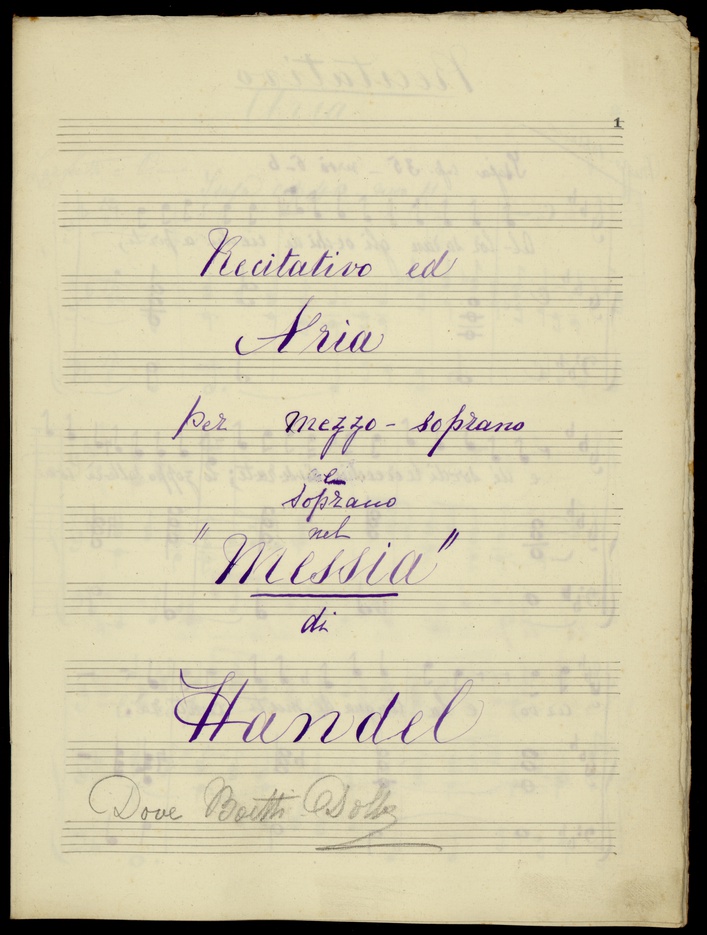 1
Recitativo ed
Aria
per mezzo-soprano
e
soprano
nel
"Messia"
di
Handel
Dove Boetti